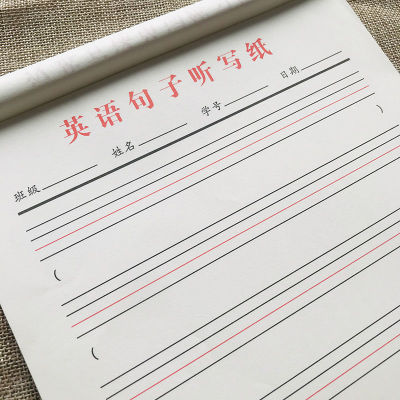 英语句子听写纸
班级 姓名 学号 日期
)
(
(